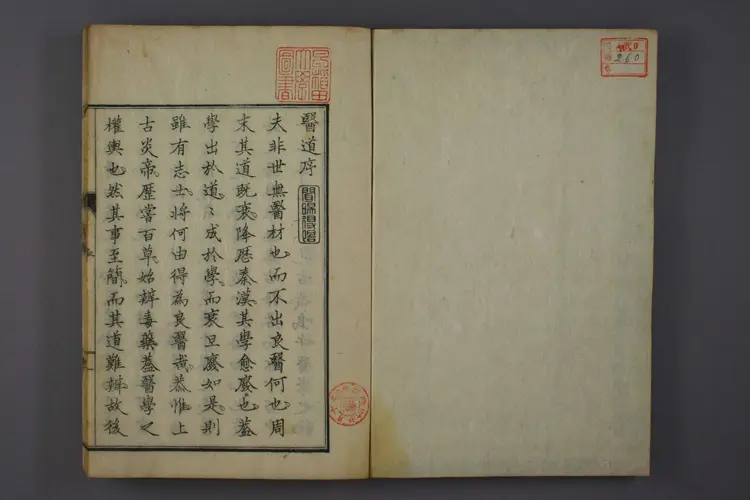 醫道序
夫非世無醫材也而不出良醫何也周
末其道既衰降歷秦漢其學愈廢也蓋
學出於道〻成於學而衰且廢如是則
雖有志士將何由得為良醫哉恭惟上
古炎帝歷嘗百草始辨毒藥蓋醫學之
權輿也然其事至簡而其道難辨故後
早稻田
大學
圖書
260